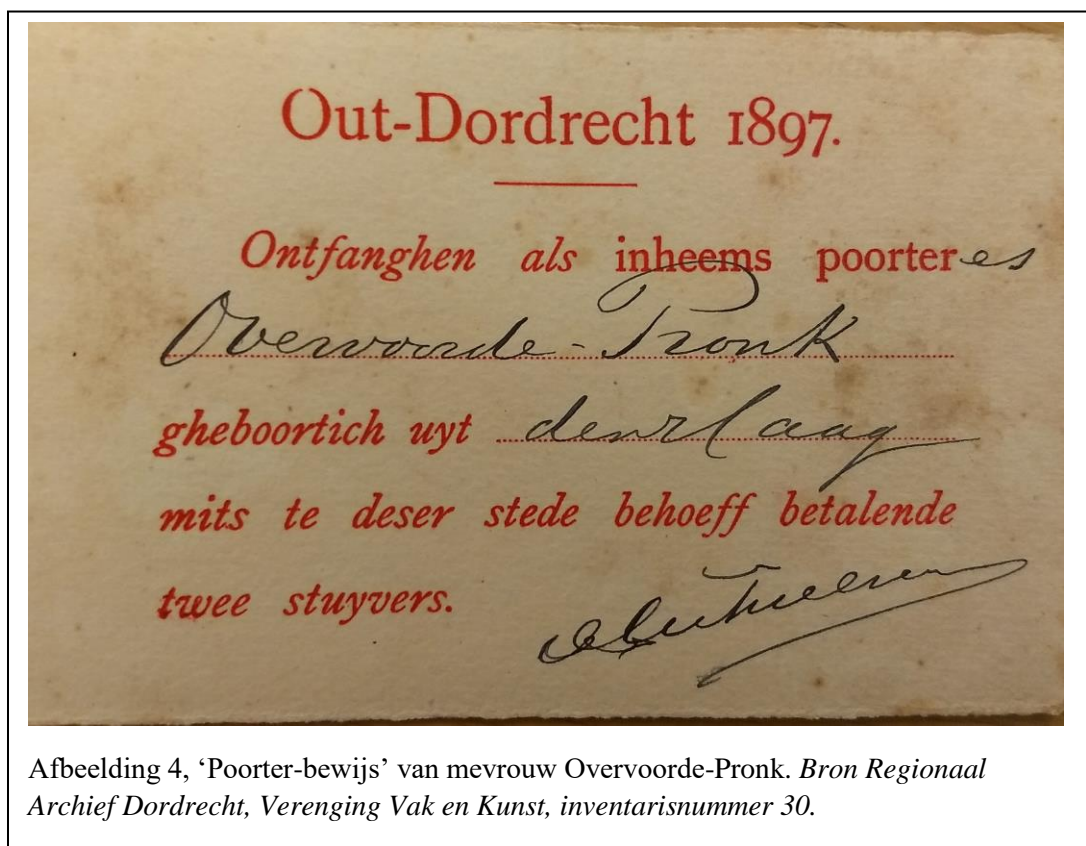 Out-Dordrecht 1897.
Ontfanghen als inheems poorteres
Overvoorde-Pronk
gheboortich uyt den Haag
mits te deser stede behoeff betalende
twee stuyvers.
Afbeelding 4, ‘Poorter-bewijs’ van mevrouw Overvoorde-Pronk. Bron Regionaal
Archief Dordrecht, Verenging Vak en Kunst, inventarisnummer 30.